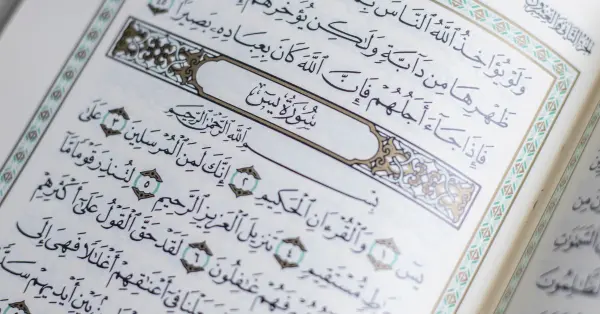 وَلَوْ يُؤَاخِذُ ٱللَّهُ ٱلنَّاسَ
ظَهْرِهَا مِن دَآبَّةٍ وَلَٰكِن يُؤَخِّرُهُمْ
فَإِذَا جَآءَ أَجَلُهُمْ فَإِنَّ ٱللَّهَ كَانَ بِعِبَادِهِۦ بَصِيرًا ٤٥
سُورَةُ يسٓ
بِسْمِ ٱللَّهِ ٱلرَّحْمَٰنِ ٱلرَّحِيمِ
يسٓ ١ وَٱلْقُرْءَانِ ٱلْحَكِيمِ ٢ إِنَّكَ لَمِنَ ٱلْمُرْسَلِينَ ٣ عَلَىٰ
مُّسْتَقِيمٍ ٤ تَنزِيلَ ٱلْعَزِيزِ ٱلرَّحِيمِ ٥ لِتُنذِرَ قَوْمًا مَّآ
فَهُمْ غَٰفِلُونَ ٦ لَقَدْ حَقَّ ٱلْقَوْلُ عَلَىٰٓ أَكْثَرِهِمْ
فِىٓ أَعْنَٰقِهِمْ أَغْلَٰلًا فَهِىَ إِلَى
بَيْنِ أَيْدِيهِمْ